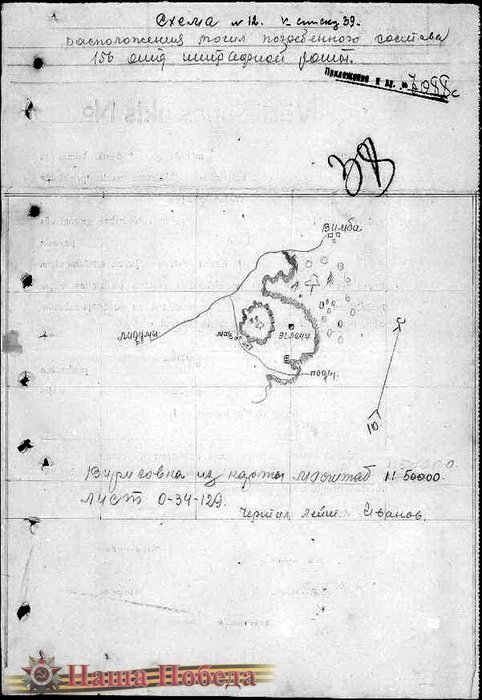 Схема № 12. к списку 39.
расположения могил погребенного состава
156 отд штрафной роты.
Приложение к вх. № 7098с
Вимба
Лидуми
Эглени
С
Ю
Вырисовка из карты масштаб 1:50000.
Лист О-34-129.
Чертил лейт. Иванов.
Наша Победа